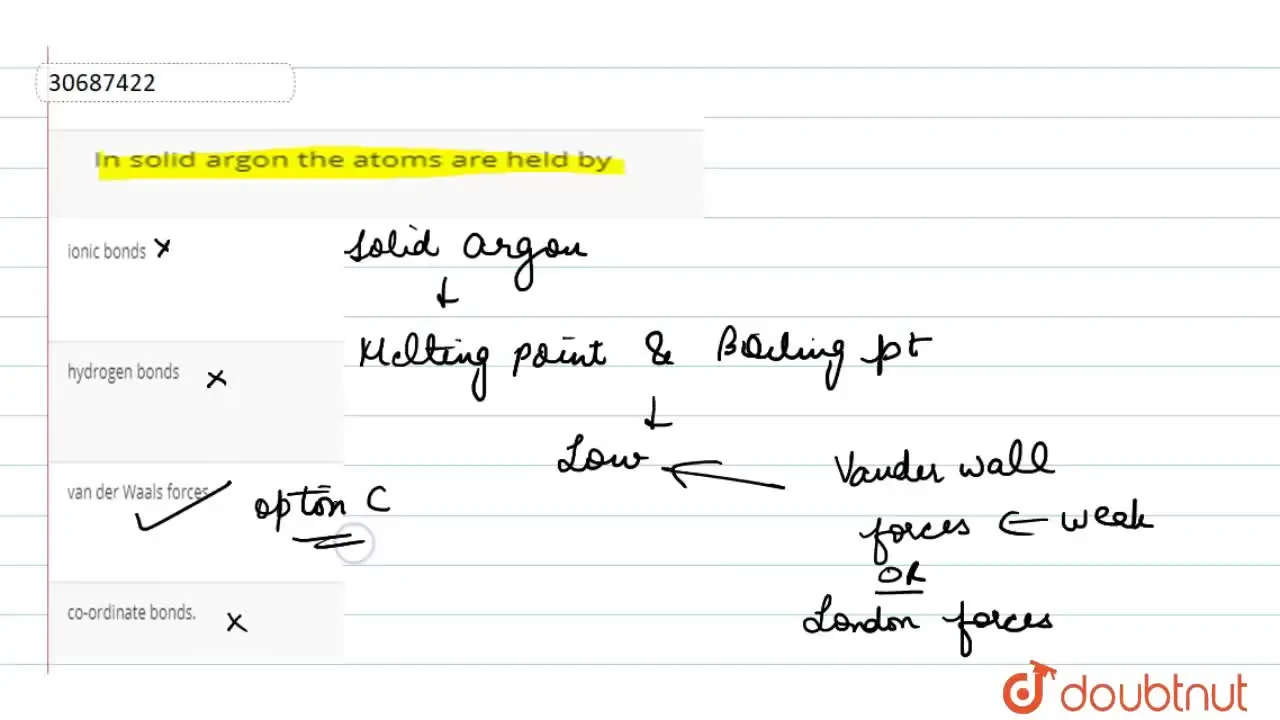 30687422
In solid argon the atoms are held by
ionic bonds x
solid argon
↓
Melting point & Boiling pt
hydrogen bonds x
↓
Low
Vander wall
van der Waals forces
option C
forces ← weak
OR
co-ordinate bonds. x
London forces
doubtnut